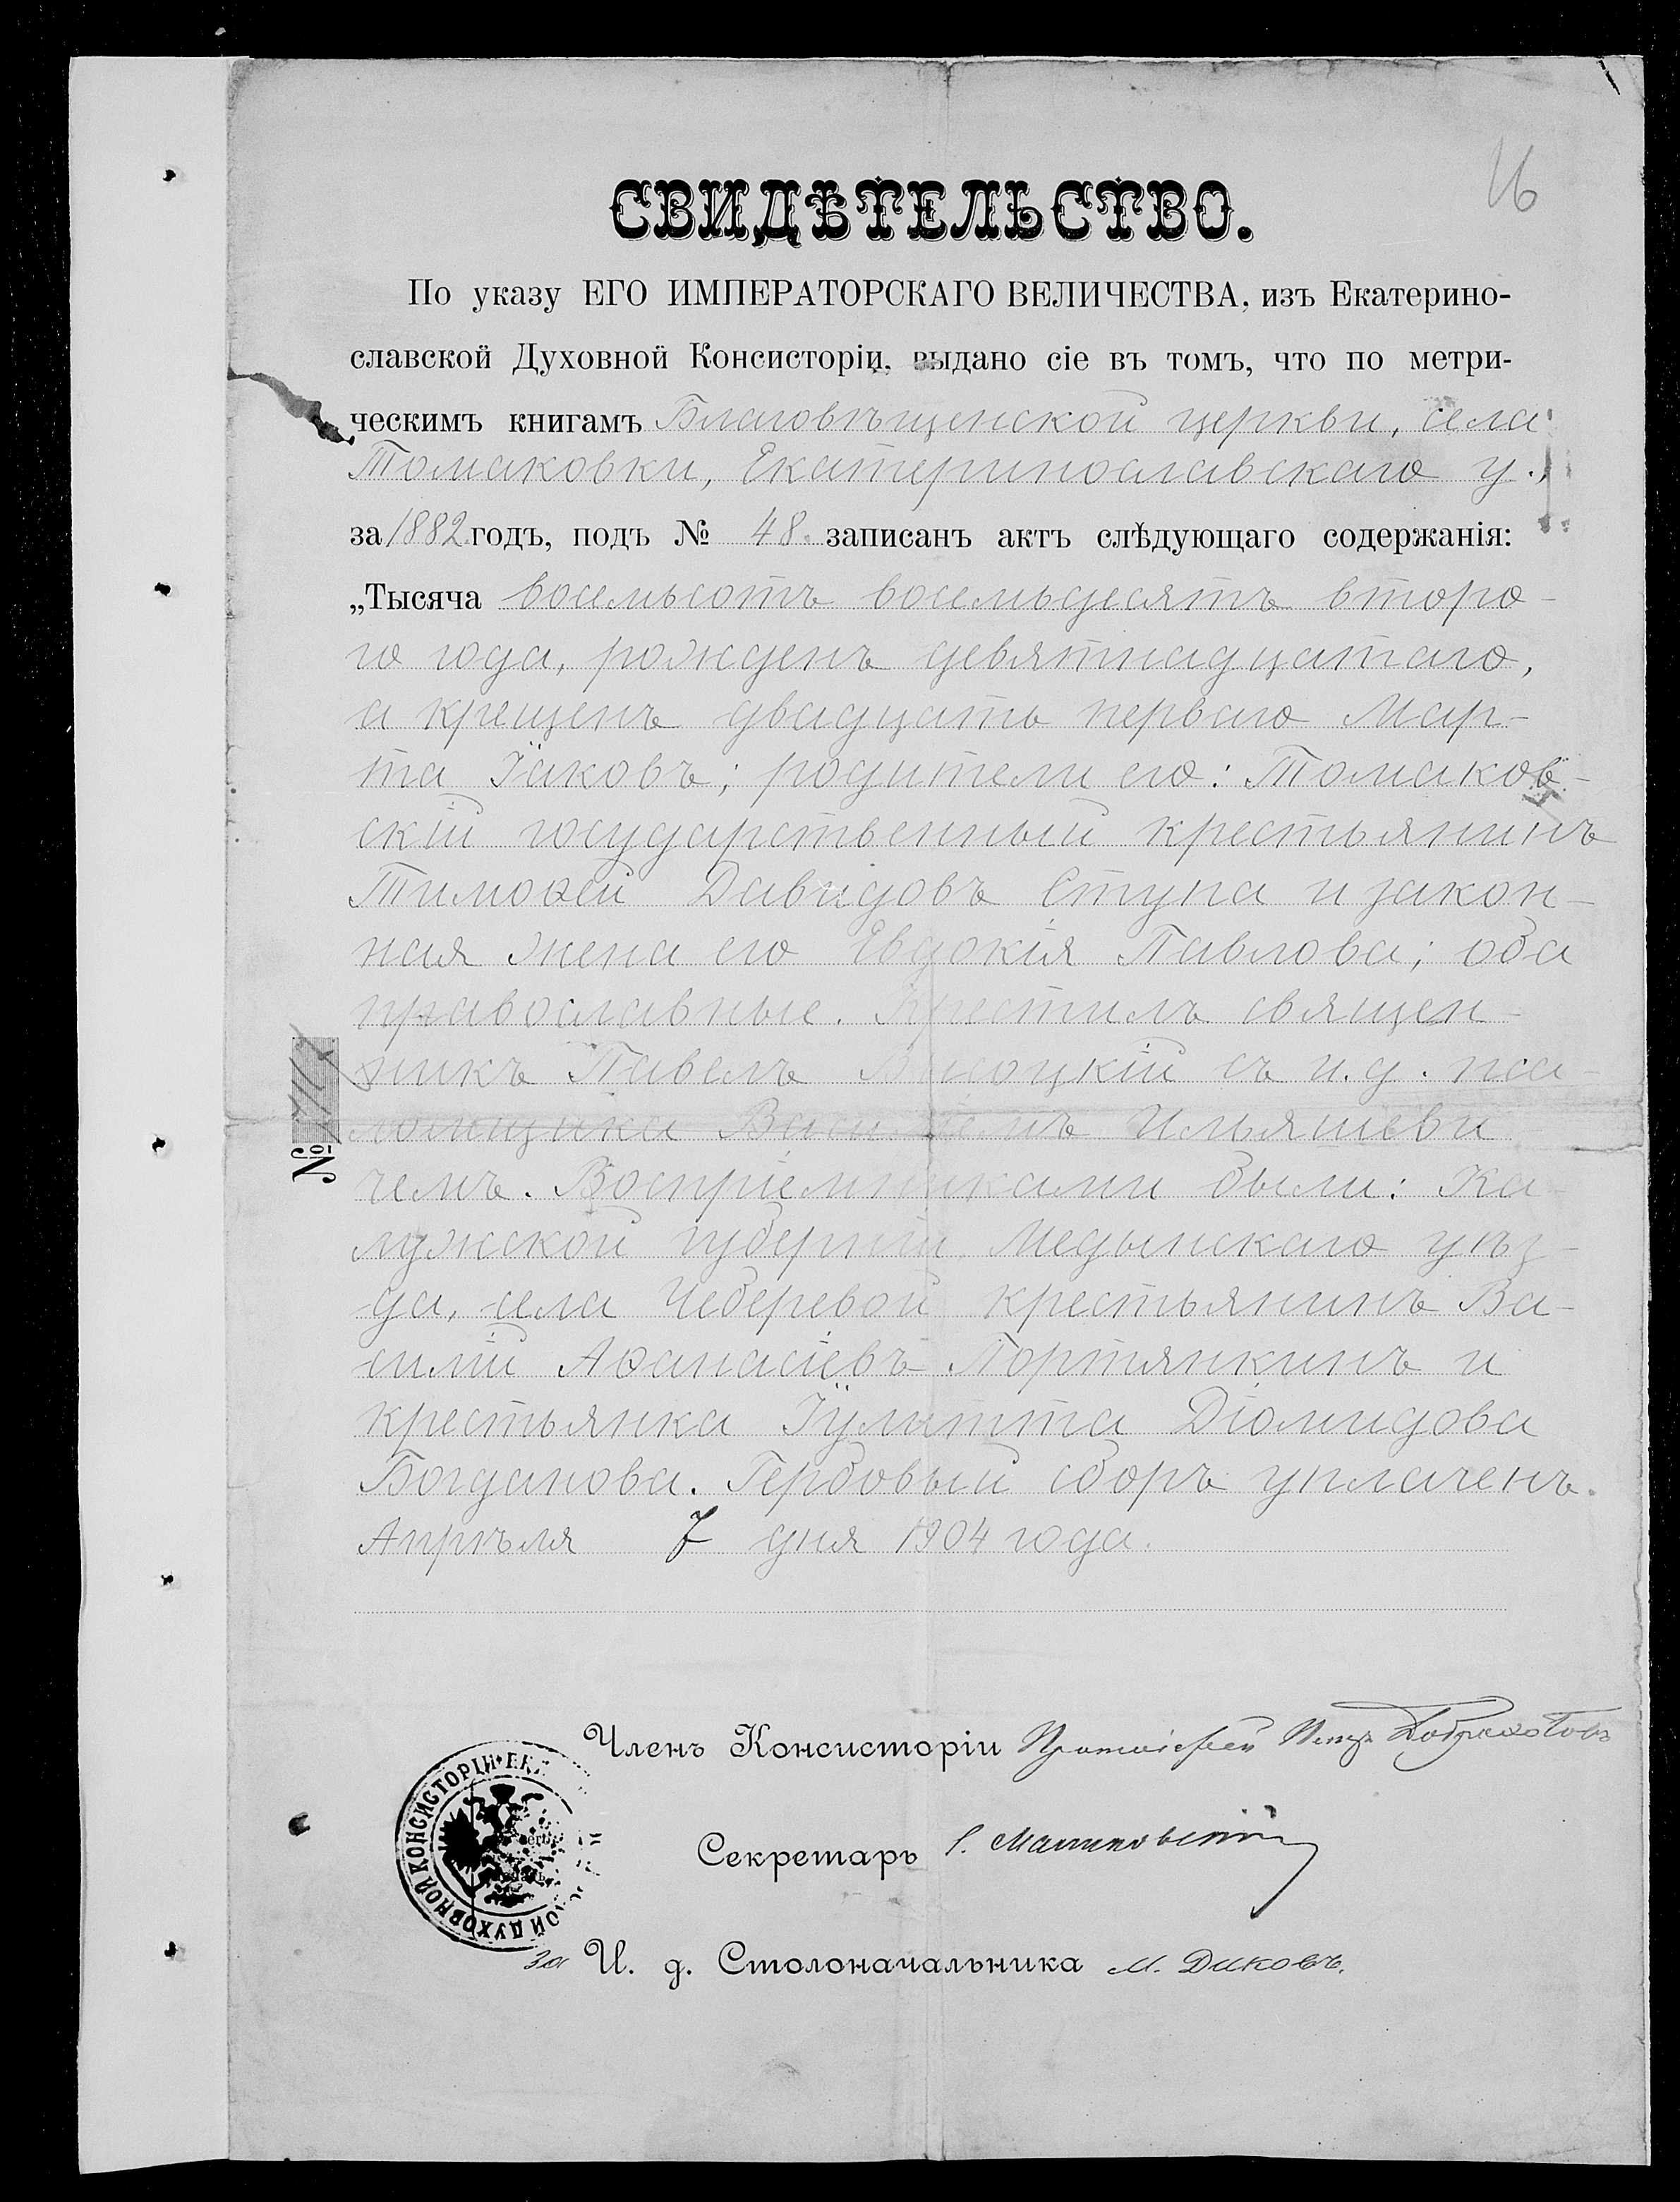 16
СВИДѢТЕЛЬСТВО.
По указу ЕГО ИМПЕРАТОРСКАГО ВЕЛИЧЕСТВА, изъ Екатерино-
славской Духовной Консисторіи, выдано сіе въ томъ, что по метри-
ческимъ книгамъ Благовѣщенской церкви, села
Томаковки, Екатеринославскаго у.,
за 1882 годъ, подъ № 48. записанъ актъ слѣдующаго содержанія:
„Тысяча восемьсотъ восемьдесятъ второ-
го года, рожденъ девятнадцатаго,
а крещенъ двадцать перваго Мар-
та Іаковъ; родители его: Томаков-
скій государственный крестьянинъ
Тимоѳей Давидовъ Ступа и закон-
ная жена его Евдокія Павлова; оба
православные. Крестилъ священ-
никъ Павелъ Высоцкій съ и. д. пса-
ломщика Василіемъ Ильяшеви-
чемъ. Воспріемниками были: Ка-
лужской губерніи, Медынскаго уѣз-
да, села Чеберевой крестьянинъ Ва-
силій Аѳанасіевъ Портянкинъ и
крестьянка Іулитта Діомидова
Богданова. Гербовый сборъ уплаченъ.
Апрѣля 7 дня 1904 года.
№
Членъ Консисторіи Протоіерей Петръ Доброхотовъ
Секретарь Малиновскій
За И. д. Столоначальника М. Диковъ.
ОЙ ДУХОВНОЙ КОНСИСТОРІИ ЕКА